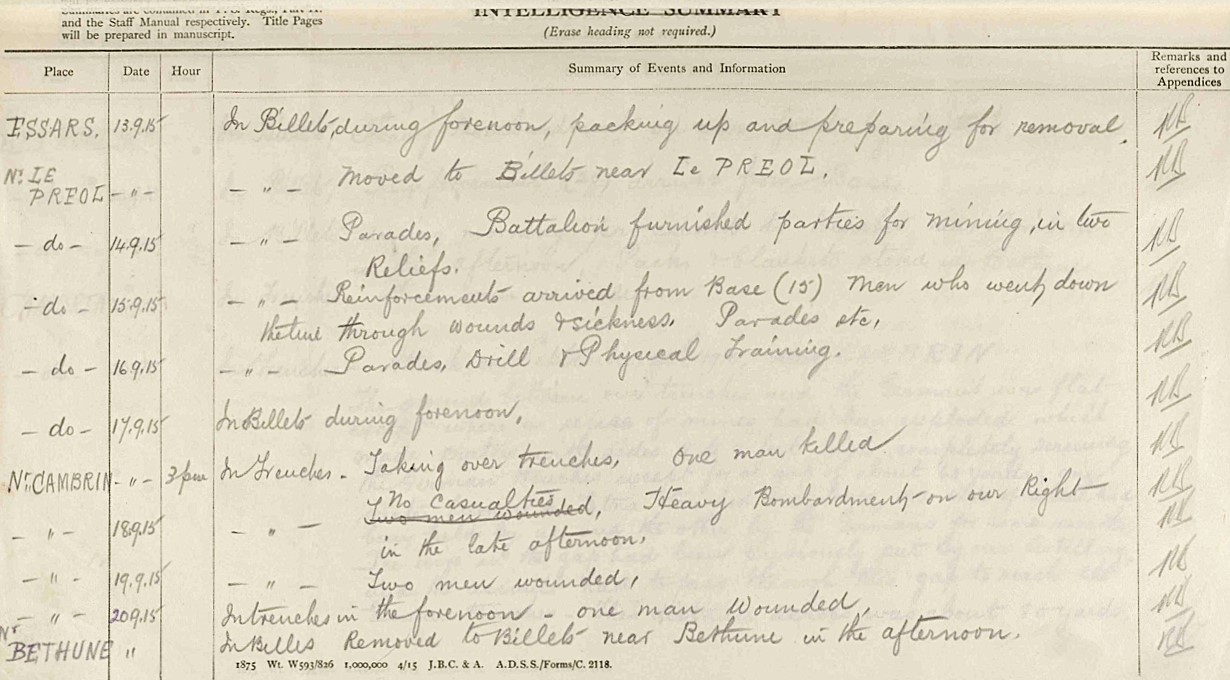 Summaries are contained in F. S. Regs., Part II.
and the Staff Manual respectively. Title Pages
will be prepared in manuscript.
INTELLIGENCE SUMMARY
(Erase heading not required.)
Place Date Hour Summary of Events and Information Remarks and references to Appendices
ESSARS. 13.9.15 In Billets, during forenoon, packing up and preparing for removal. RB
Nr. LE
PREOL -"- -"- Moved to Billets near Le PREOL. RB
- do - 14.9.15 -"- Parades, Battalion furnished parties for mining, in two RB
Reliefs.
- do - 15.9.15 -"- Reinforcements arrived from Base (15) Men who went down RB
the line through wounds & sickness. Parades etc, RB
- do - 16.9.15 -"- Parades, Drill & Physical Training. RB
- do - 17.9.15 In Billets during forenoon, RB
Nr. CAMBRIN -"- 3 pm In Trenches - Taking over trenches, One man killed RB
No casualties
-"- 18.9.15 -"- Two men wounded, Heavy Bombardment on our Right RB
in the late afternoon.
-"- 19.9.15 -"- Two men wounded, RB
-"- 20.9.15 In trenches in the forenoon - one man Wounded, RB
Nr
BETHUNE " In Billes Removed to Billets near Bethune in the afternoon. RB
1875 Wt. W593/826 1,000,000 4/15 J.B.C. & A. A.D.S.S./Forms/C. 2118.